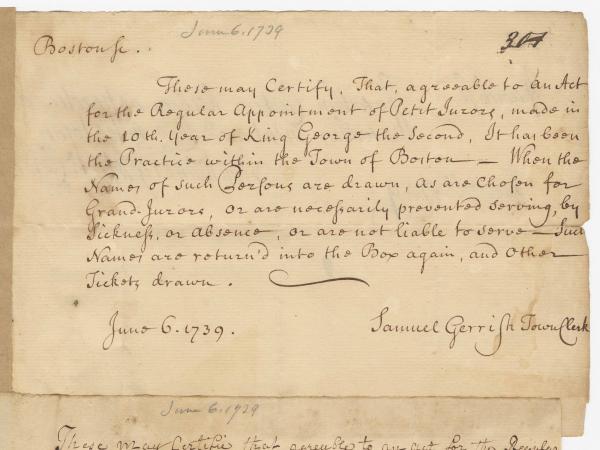 June 6. 1739
301
Boston ss.
These may Certify, That, agreeable to an Act
for the Regular Appointment of Petit Jurors, made in
the 10th. Year of King George the Second, It has been
the Practice within the Town of Boston — When the
Names of such Persons are drawn, as are Chosen for
Grand-Jurors, or are necessarily prevented serving, by
Sickness, or absence, or are not liable to serve — Such
Names are return'd into the Box again, and other
Tickets drawn.
June 6. 1739. Samuel Gerrish Town Clerk
June 6. 1739
These may Certifie that agreable to an act for the Regular